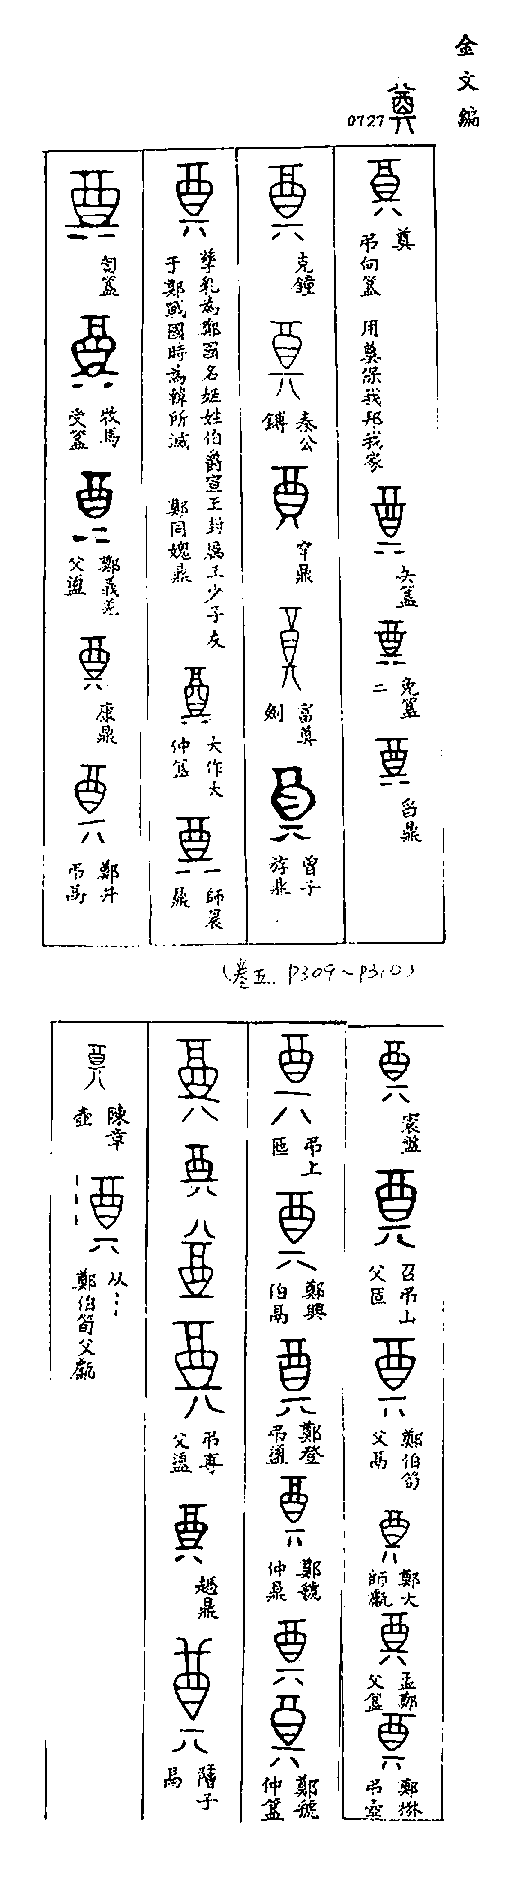 金文編
奠
0727
奠
弔向簋 用奠保我邦我家
夨簋
免簋
二
舀鼎
克鐘
秦公
鎛
鼎
富奠
劍
曾子
斿鼎
孳乳為鄭國名姬姓伯爵宣王封厲王少子友
于鄭戰國時為韓所滅 鄭同媿鼎
大作大
仲簋
師晨
鼎
匄簋
牧馬
受簋
鄭義羌
父盨
康鼎
鄭井
弔鬲
(卷五.. P309~P310)
寰盤
召弔山
父匜
鄭伯筍
父鬲
鄭大
師甗
孟鄭
父簋
鄭楙
弔壺
弔上
匜
鄭興
伯鬲
鄭登
弔盨
鄭虢
仲鼎
鄭虢
仲簋
弔尃
父盨
趞鼎
子
鬲
陳章
壺
从
鄭伯筍父甗